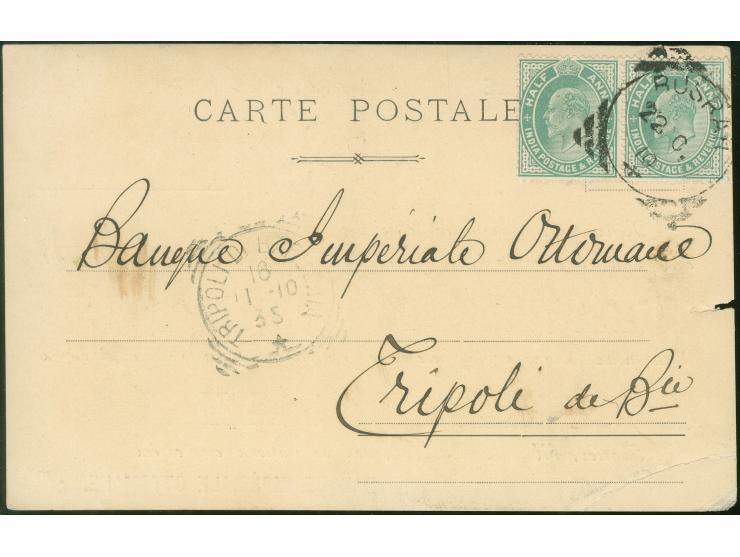 CARTE POSTALE
HALF ANNA
INDIA POSTAGE & REVENUE
HALF ANNA
INDIA POSTAGE & REVENUE
BUSRAH
22 O
10
Banque Impériale Ottomane
TRIPOLI
18
11 -10
35
Tripoli de Bie